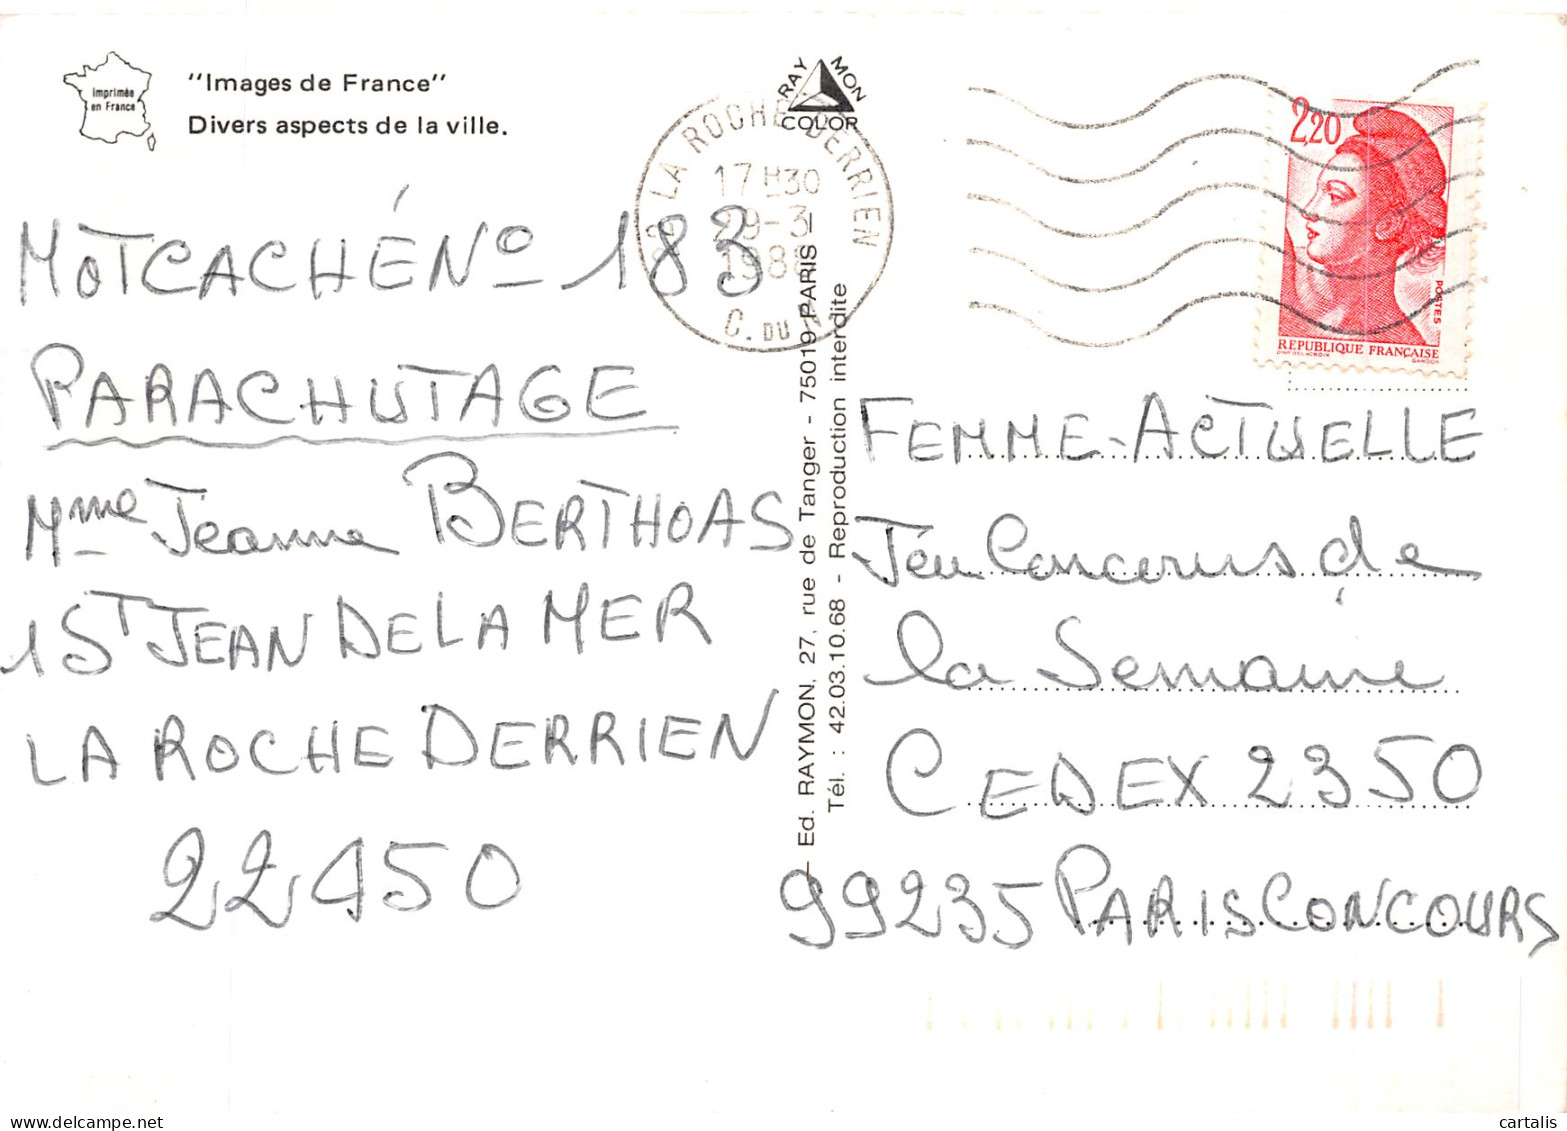 Imprimée
en France
"Images de France"
Divers aspects de la ville.
RAYMON
COLOR
LA ROCHE DERRIEN
17H30
29-3
198
C. DU N
2,20
POSTES
REPUBLIQUE FRANÇAISE
D'AP. DELACROIX
GANDON
MOT CACHÉ Nº 183
PARACHUTAGE
Mme Jeanne BERTHOAS
1 ST JEAN DE LA MER
LA ROCHE DERRIEN
22450
Ed. RAYMON, 27, rue de Tanger - 75019 PARIS -
Tél. : 42.03.10.68 - Reproduction interdite
FEMME-ACTUELLE
Jeu Concours de
la Semaine
CEDEX 2350
99235 PARIS CONCOURS
cartalis